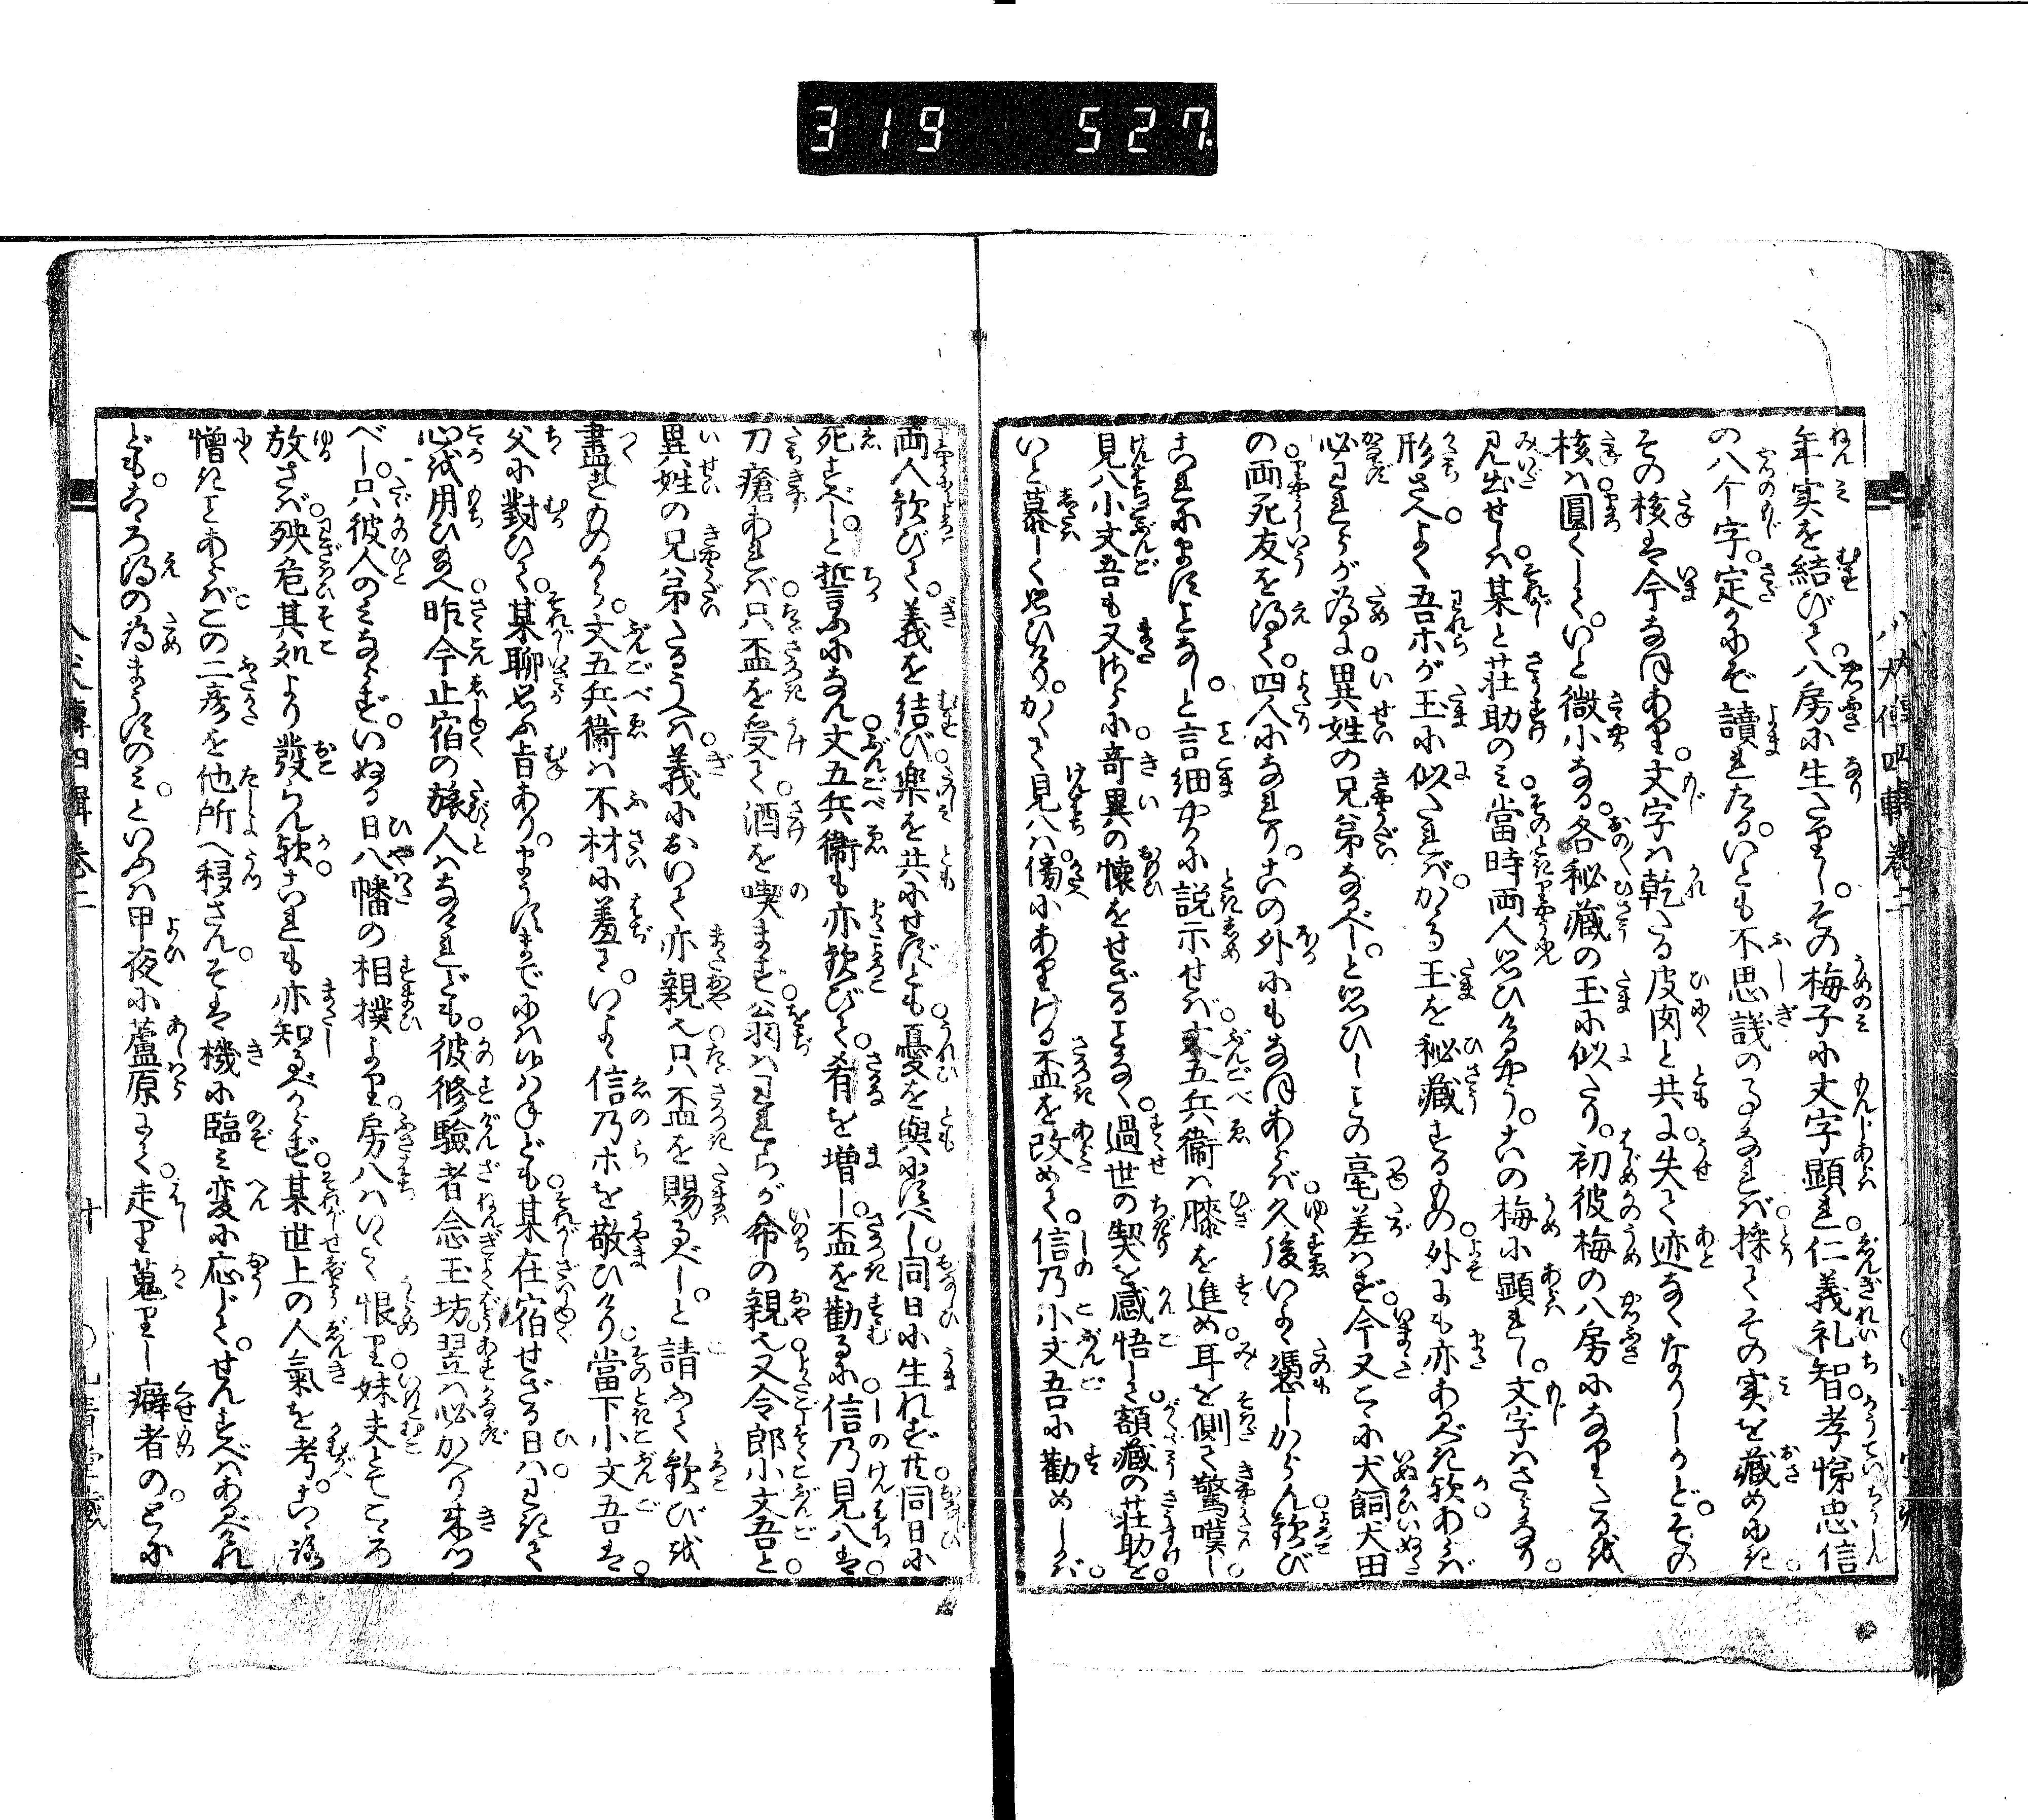 319 527
年実を結びて八房に生たりし。その梅子に文字顕れ仁義礼智孝悌忠信
の八个字。定かにぞ讀れたる。いとも不思議の事なれば採てその実を藏めにき。
その核は今なほあり。文字は乾たる皮肉と共に失て迹なくなりしかど。その
核は圓くして。いと微小なる各秘藏の玉に似たり。初彼梅の八房になりたるを
見出せしは某と荘助のみ當時両人思ひけるやう。この梅に顕れし。文字はさらなり。
形さへよく吾ホが玉に似たれば。かゝる玉を秘藏するもの外にも亦あるべき歟あらば
必われらが為に異姓の兄弟なるべし。と思ひしことの毫差はず。今又こゝに犬飼犬田
の両死友を得て。四人になれり。この外にもなほあらば久後いよゝ憑しからん歓び
これにますよしなし。と言細やかに説示せば。文五兵衞は膝を進め耳を側て驚嘆し。
見八小文吾も又さらに竒異の懐をせざることなく。過世の契を感悟して。額藏の荘助を。
いと慕しく思ひけり。かくて見八は傍にありける盃を改めて。信乃小文吾に勸めしかば。
両人歓びて。義を結び樂を共にせずとも。憂を與にすべし。同日に生れず共同日に
死すべし。と誓ふになん文五兵衞も亦歓びて。肴を増し。盃を勸るに信乃見八は。
刀瘡あれば只盃を受て。酒を喫ます。翁はわれらが命の親也又令郎小文吾と
異姓の兄弟たるうへは。義において亦親也只盃を賜るべし。と請ふて歓びを
盡すものから。文五兵衞は不材に羞て。いよゝ信乃ホを敬ひけり當下小文吾は。
父に對ひて。某聊思ふ旨あり。まうすまでには侯はねども。某在宿せざる日は。わきて
心を用ひ給へ昨今止宿の旅人はなけれども。彼修驗者念玉坊翌は必かへり來つ
べし。只彼人のみならず。いぬる日八幡の相撲より。房八はいたく恨り妹夫とてこゝろ
放さば殃危其処より發らん歟。これも亦知るべからず某世上の人氣を考。
憎きことあらば。この二彦を他所へ移さん。そは機に臨み変に応じて。せんすべはあるべけれ
ども。こゝろ得の為まうすのみ。といふは甲夜に蘆原にて。走り蒐りし癖者の。ことに